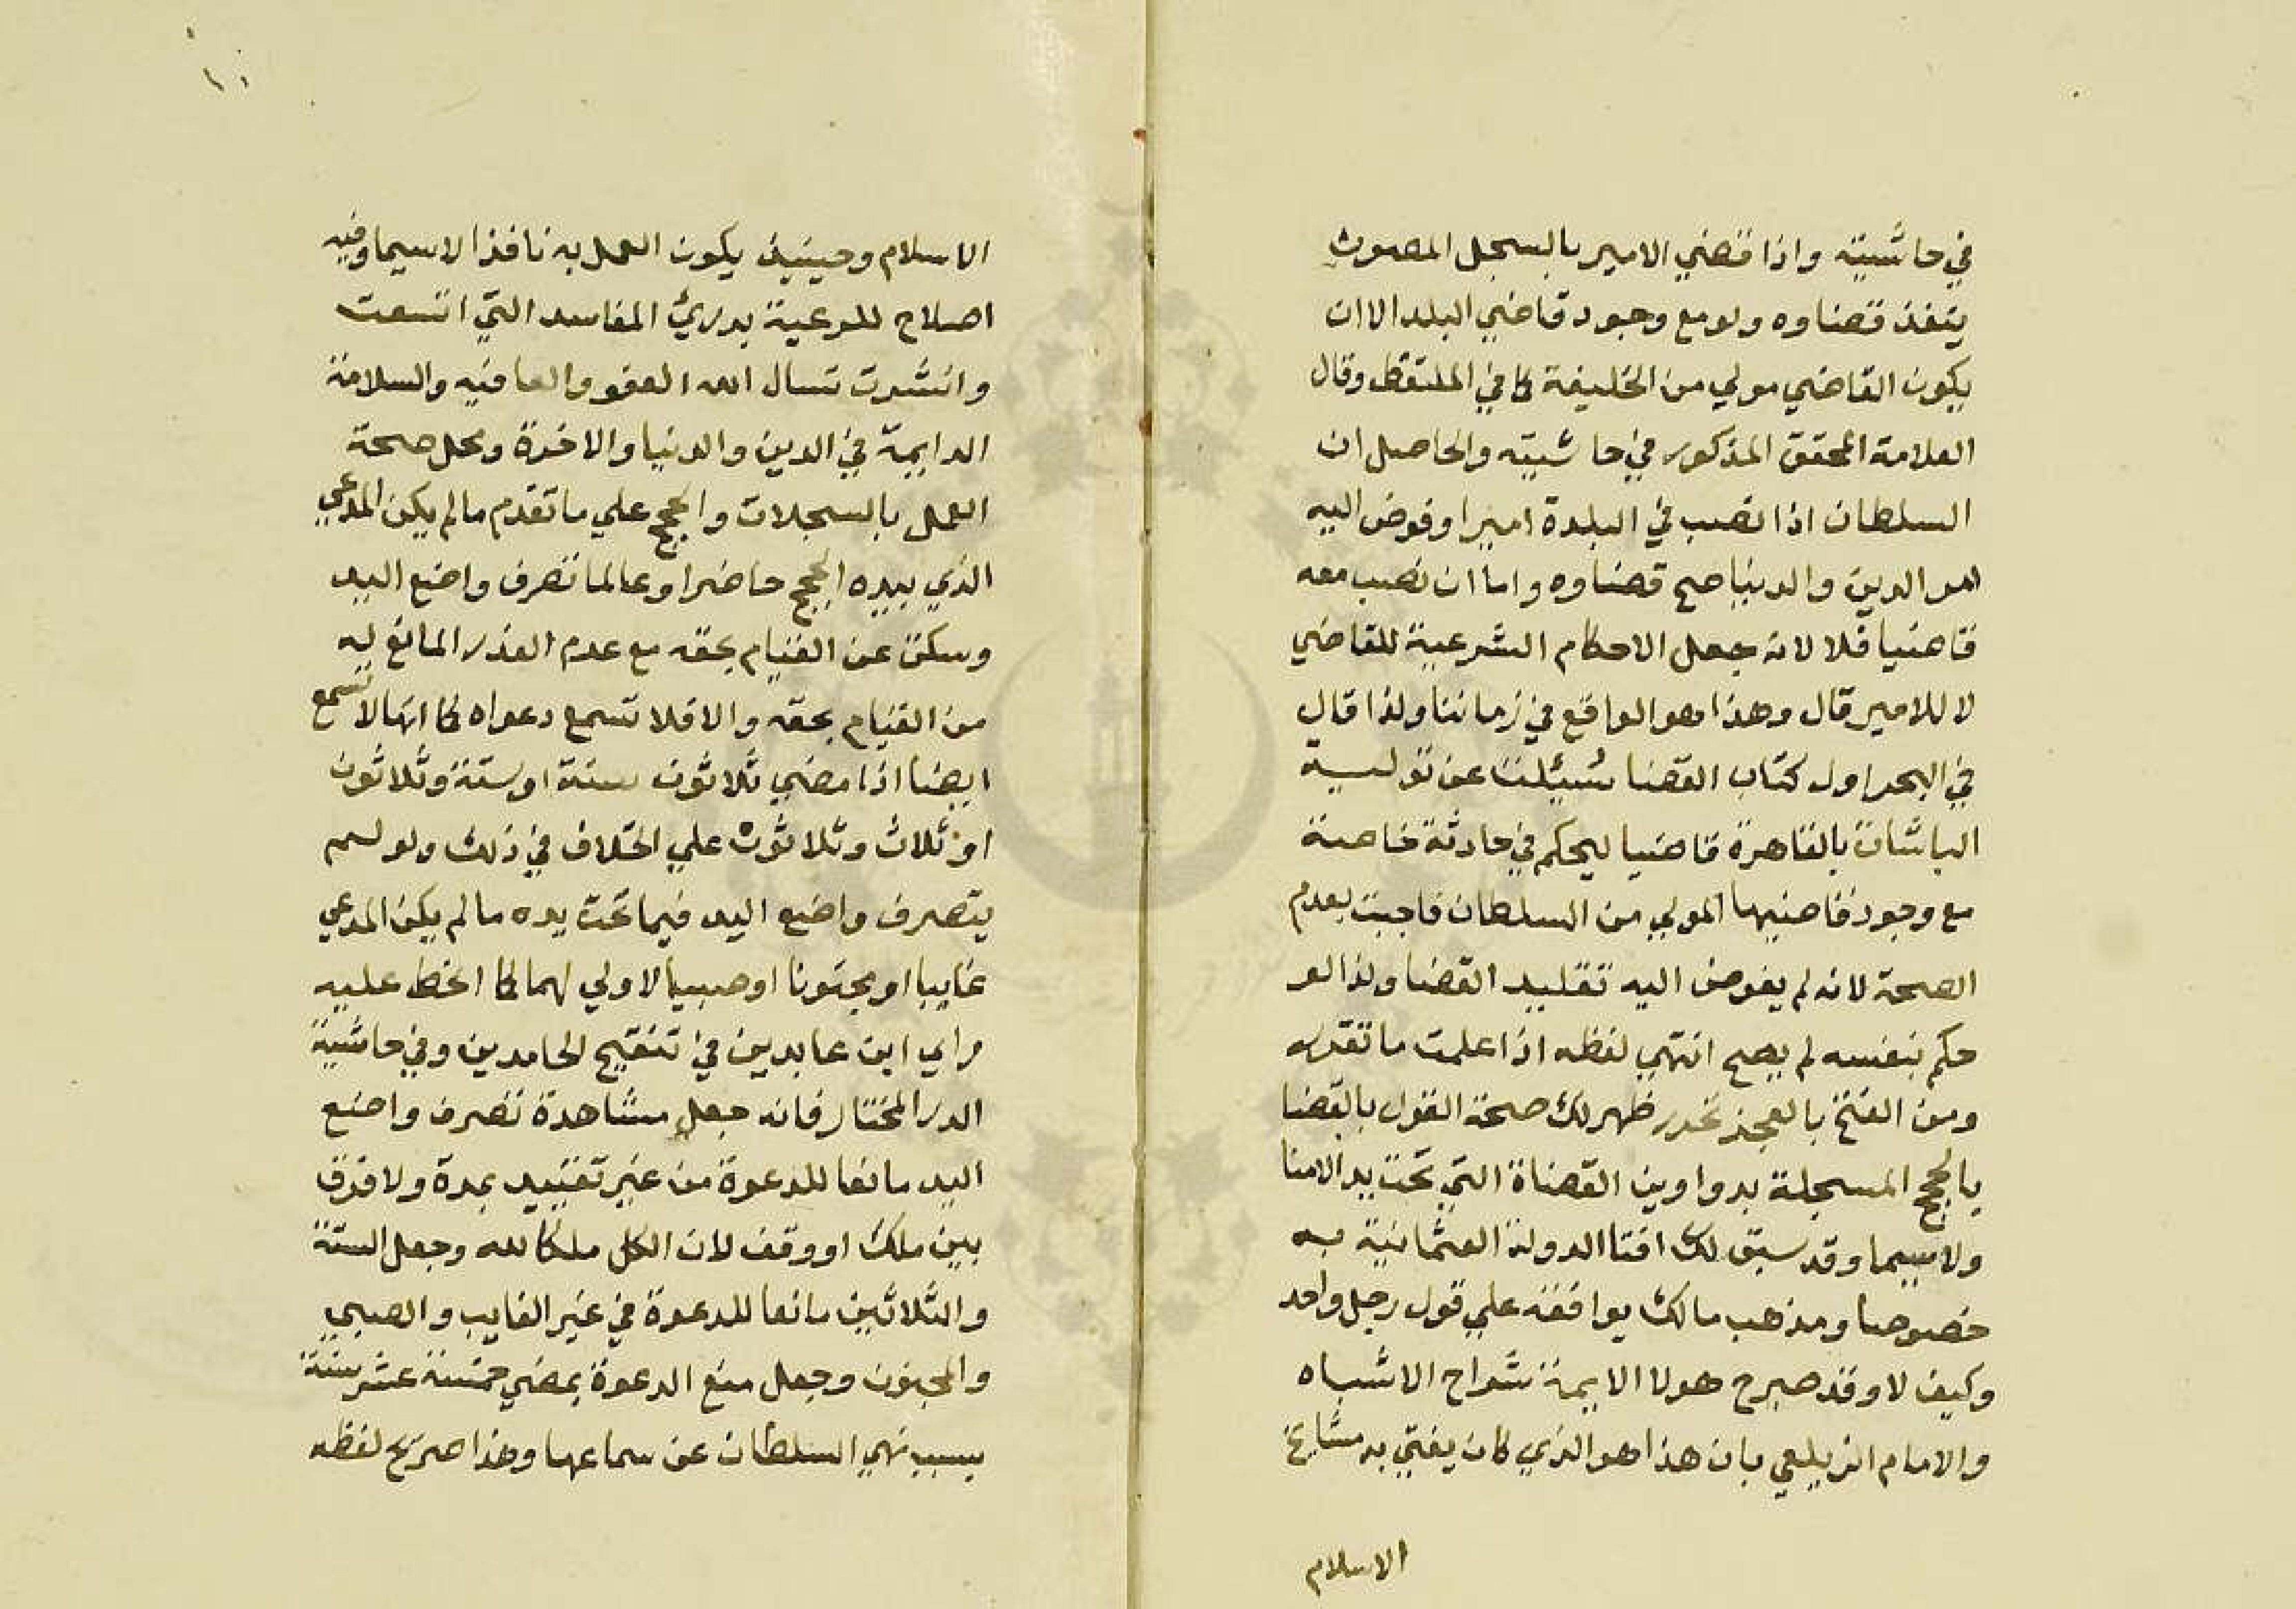 في حاشيته واذا قضي الامير بالسجل المصون
ينفذ قضاوه ولو مع وجود قاضي البلد الا ان
يكون القاضي مولي من الخليفة كما في الملتقط وقال
العلامة المحقق المذكور في حاشيته والحاصل ان
السلطان اذا نصب في البلدة اميرا وفوض اليه
امر الدين والدنيا صح قضاوه واما ان نصب معه
قاضيا فلا لانه جعل الاحكام الشرعية للقاضي
لا للامير قال وهذا هو الواقع في زماننا ولذا قال
في البحر اول كتاب القضا سئيلت عن تولية
الباشاة بالقاهرة قاضيا ليحكم في حادثة خاصة
مع وجود قاضيها المولي من السلطان فاجبت بعدم
الصحة لانه لم يفوض اليه تقليد القضا ولذا لو
حكم بنفسه لم يصح انتهي لفظه اذا علمت ما تقرر
ومن الفتح بالعجز تحرر ظهر لك صحة القول بالقضا
بالحجج المسجلة بدواوين القضاة التي تحت يد الامنا
ولاسيما وقد سبق لك افتا الدولة العثمانية به
خصوصا ومذهب مالك يوافقه علي قول رجل واحد
وكيف لا وقد صرح هولا الايمة شراح الاشباه
والامام الزيلعي بان هذا هو الذي كان يفتي به مشايخ
الاسلام
١٠
الاسلام وحينيذ يكون العمل به نافذا لاسيما وفيه
اصلاح للرعية بدرئ المفاسد التي اتسعت
وانتشرت نسال الله العفو والعافيه والسلامة
الدايمة في الدين والدنيا والاخرة ومحل صحة
العمل بالسجلات والحجج علي ما تقدم ما لم يكن المدعي
الذي بيده الحجج حاضرا وعالما تصرف واضع اليد
وسكت عن القيام بحقه مع عدم العذر المانع له
من القيام بحقه والا فلا تسمع دعواه كما انها لا تسمع
ايضا اذا مضي ثلاثون سنة او ستة وثلاثون
او ثلاث وثلاثون علي اختلاف في ذلك ولو لم
يتصرف واضع اليد فيما تحت يده ما لم يكن المدعي
غايبا او مجنونا او صبيا لا ولي لهما كما انحط عليه
راي ابن عابدين في تنقيح الحامدين وفي حاشية
الدر المختار فانه جعل مشاهدة تصرف واضع
اليد مانعا للدعوة من غير تقييد بمدة ولا فرق
بين ملك او وقف لان الكل ملكا لله وجعل الستة
والثلاثين مانعا للدعوة في غير الغايب والصبي
والمجنون وجعل منع الدعوة بمضي خمسة عشر سنة
بسبب نهي السلطان عن سماعها وهذا صريح لفظه